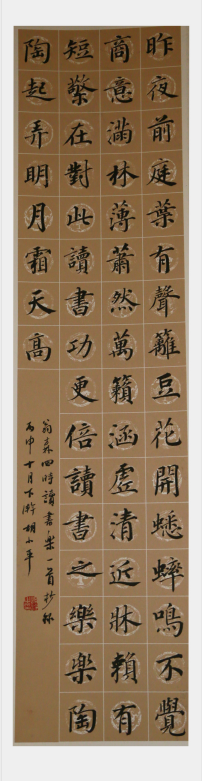 昨夜前庭葉有聲籬豆花開蟋蟀鳴不覺
商意滿林薄蕭然萬籟涵虛清近牀賴有
短檠在對此讀書功更倍讀書之樂樂陶
陶起弄明月霜天高
翁森四時讀書樂一首抄錄
丙申十月下澣胡小平